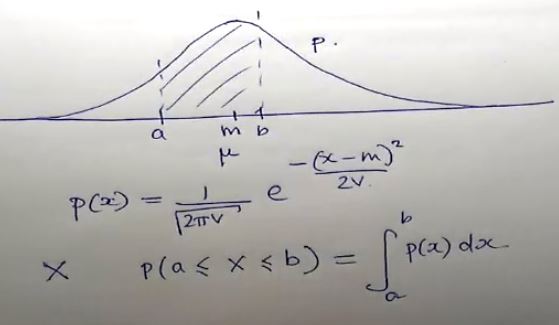 p.
a m b
μ
p(x) = 1/√(2πv) e^(-(x-m)²/2v.)
X p(a ≤ x ≤ b) = ∫_a^b p(x) dx